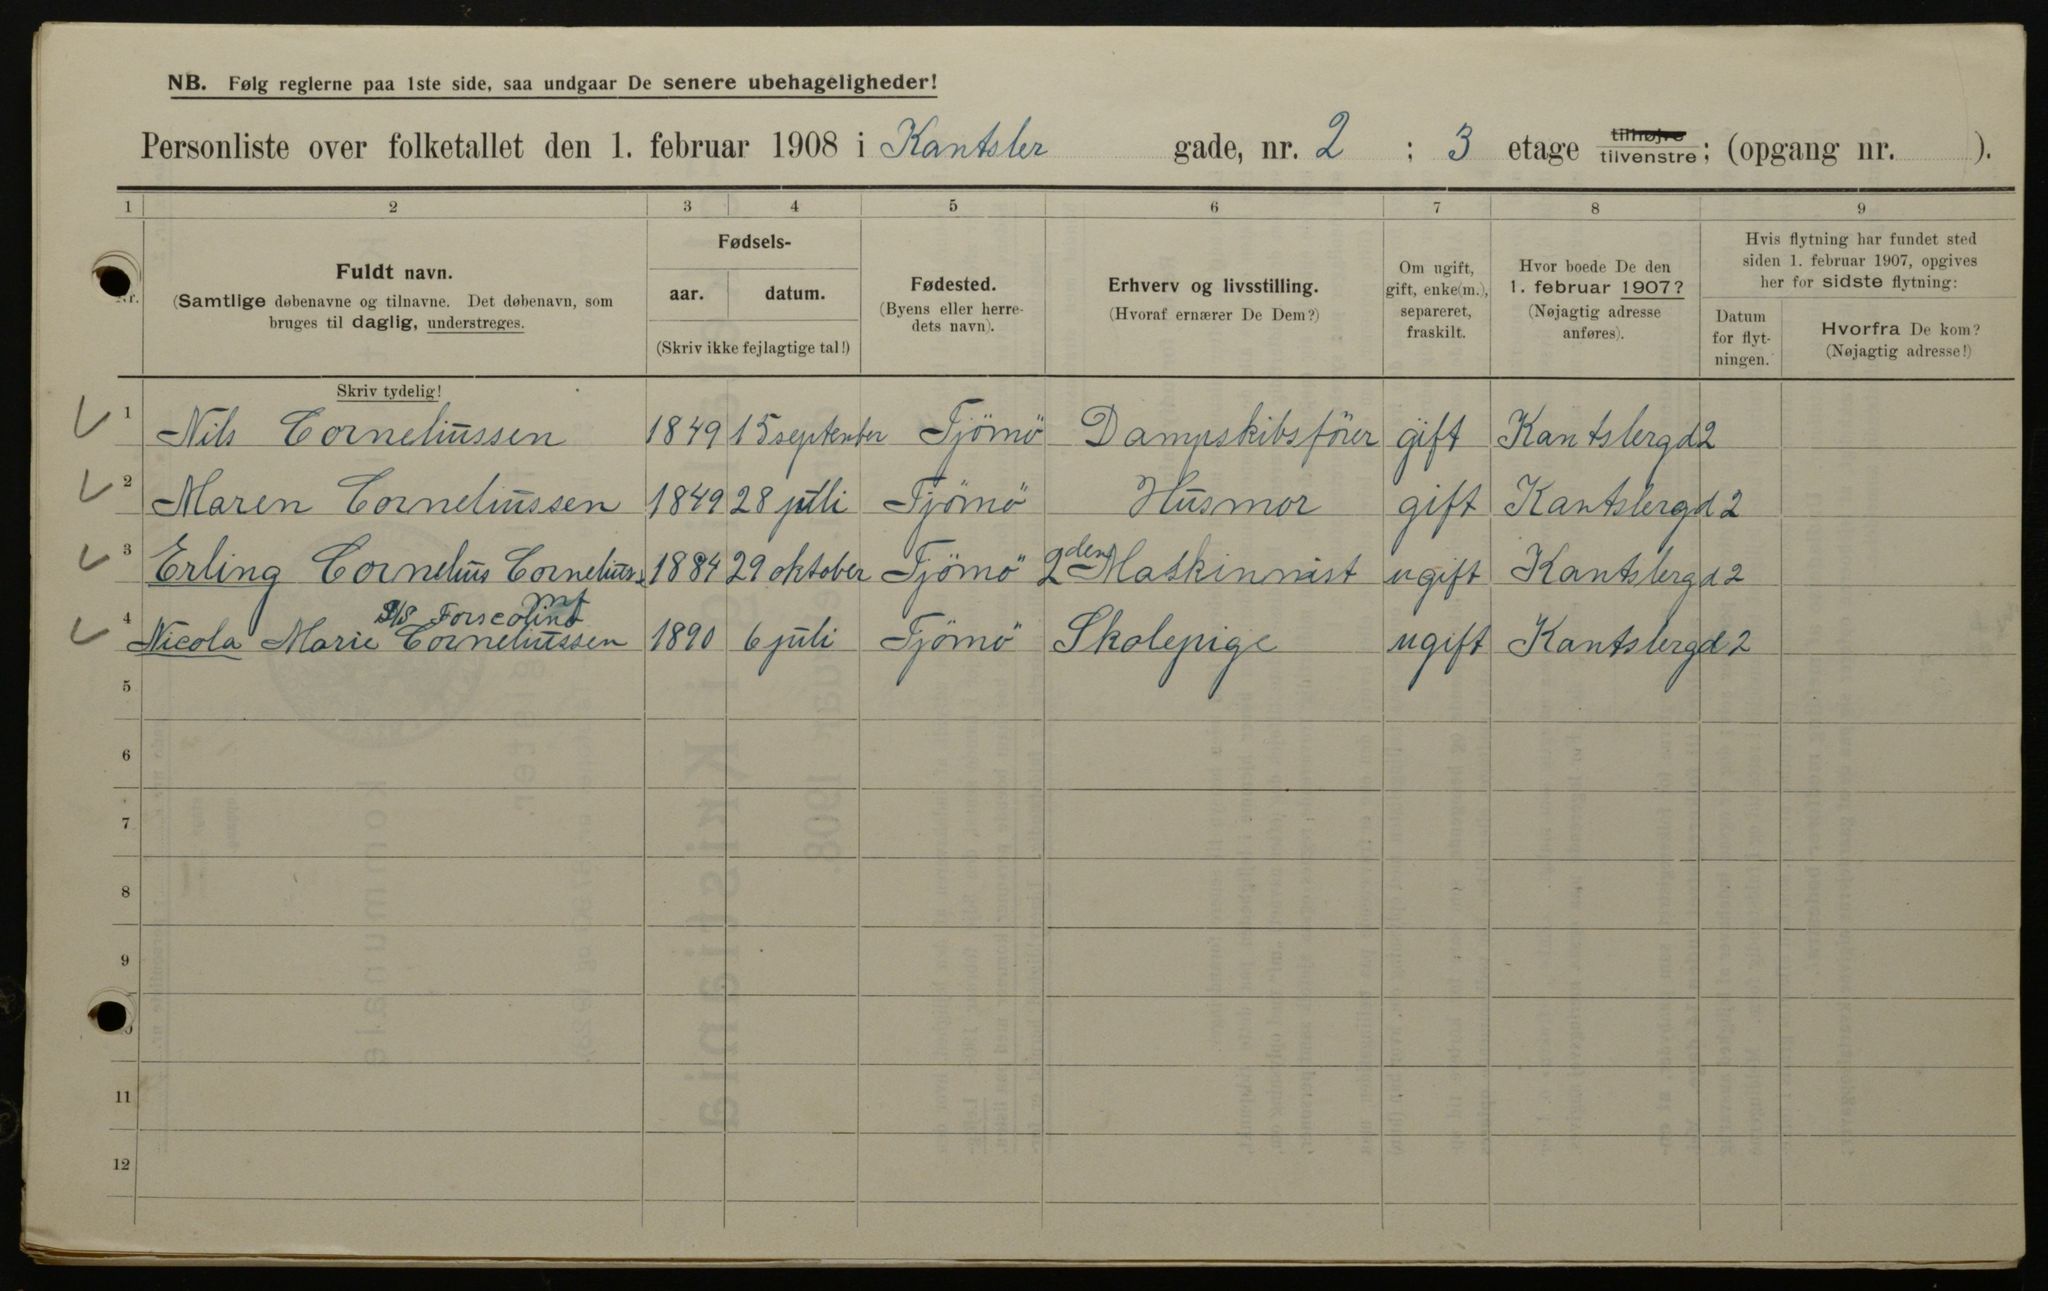 NB. Følg reglerne paa 1ste side, saa undgaar De senere ubehageligheder!
Personliste over folketallet den 1. februar 1908 i Kantsler gade, nr. 2 ; 3 etage tilhøjre tilvenstre; (opgang nr. ).
1 2 3 4 5 6 7 8 9
Nr.
Fuldt navn.
(Samtlige døbenavne og tilnavne. Det døbenavn, som
bruges til daglig, understreges.
Fødsels-
aar. datum.
(Skriv ikke fejlagtige tal!)
Fødested.
(Byens eller herre-
dets navn).
Erhverv og livsstilling.
(Hvoraf ernærer De Dem?)
Om ugift,
gift, enke(m.),
separeret,
fraskilt.
Hvor boede De den
1. februar 1907?
(Nøjagtig adresse
anføres).
Hvis flytning har fundet sted
siden 1. februar 1907, opgives
her for sidste flytning:
Datum
for flyt-
ningen.
Hvorfra De kom?
(Nøjagtig adresse!)
Skriv tydelig!
1 Nils Corneliussen 1849 15 september Tjömö Dampskibsförer gift Kantslergd 2
2 Maren Corneliussen 1849 28 juli Tjömö Husmor gift Kantslergd 2
3 Erling Cornelius Cornelius. 1884 29 oktober Tjömö 2den Maskinnist ugift Kantslergd 2
S/S
4 Nicola Marie Corneliussen 1890 6 juli Tjömö Skolepige ugift Kantslergd 2
5
6
7
8
9
10
11
12